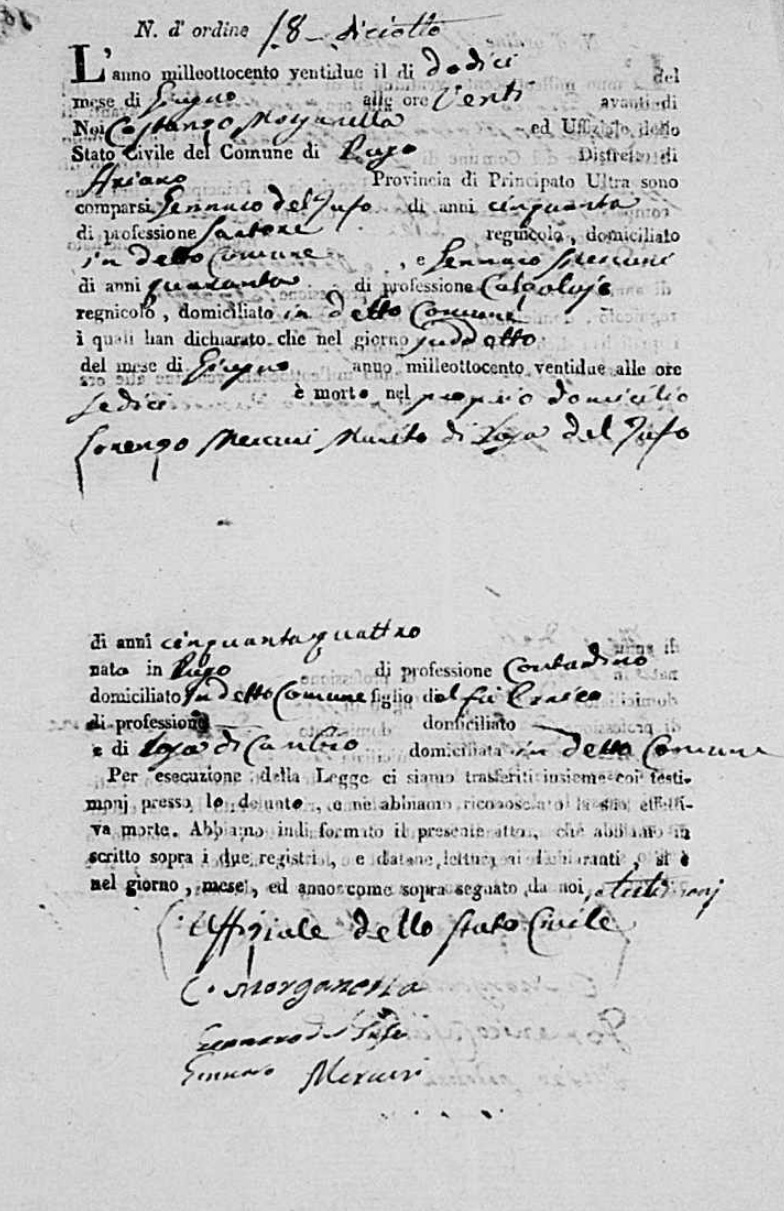 N. d' ordine 18 diciotto
L'anno milleottocento ventidue il di dodici del
mese di Giugno alle ore Venti avanti di
Noi Costanzo Morganella ed Uffiziale dello
Stato Civile del Comune di Distretto di
Ariano Provincia di Principato Ultra sono
comparsi Gennaro del Tufo di anni cinquanta
di professione Sartore regnicolo, domiciliato
in detto Comune, e Gennaro Mercuri
di anni quaranta di professione Calzolajo
regnicolo, domiciliato in detto Comune
i quali han dichiarato che nel giorno suddetto
del mese di Giugno anno milleottocento ventidue alle ore
sedici è morto nel proprio domicilio
Lorenzo Mercuri Marito di del Tufo
di anni cinquanta quattro
nato in di professione Contadino
domiciliato in detto Comune figlio del fu
di professione domiciliato
e di domiciliata in detto Comune
Per esecuzione della Legge ci siamo trasferiti insieme coi testi-
monj presso lo defunto, e ne abbiamo riconosciuto la sua effetti-
va morte. Abbiamo indi formato il presente atto, che abbiamo in
scritto sopra i due registri, e datane lettura ai dichiaranti si è
nel giorno, mese, ed anno come sopra segnato da noi, e testimonj
L'Uffiziale dello Stato Civile
C. Morganella
Gennaro del Tufo
Gennaro Mercuri